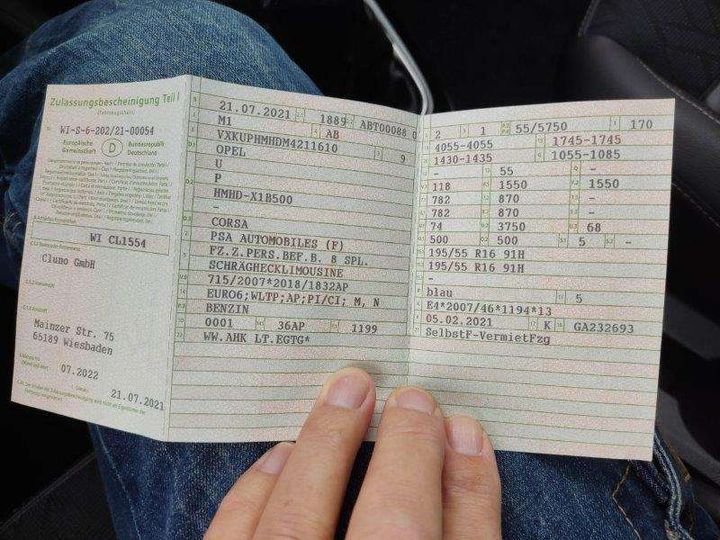 Zulassungsbescheinigung Teil I
(Fahrzeugschein)
WI-S-6-202/21-00054
Europäische Gemeinschaft
D
Bundesrepublik Deutschland
WI CL1554
Cluno GmbH
Mainzer Str. 75
65189 Wiesbaden
07.2022
21.07.2021
21.07.2021 1889 ABT00088 0
M1 AB
VXKUPHMHDM4211610 9
OPEL
U
P
HMHD-X1B500
-
CORSA
PSA AUTOMOBILES (F)
FZ.Z.PERS.BEF.B. 8 SPL.
SCHRÄGHECKLIMOUSINE
715/2007*2018/1832AP
EURO6;WLTP;AP;PI/CI; M, N
BENZIN
0001 36AP 1199
WW.AHK LT.EGTG*
2 1 55/5750 170
4055-4055 1745-1745
1430-1435 1055-1085
- 55 -
118 1550 1550
782 870 -
782 870 -
74 3750 68
500 500 5 -
195/55 R16 91H
195/55 R16 91H
-
blau 5
E4*2007/46*1194*13
05.02.2021 K GA232693
SelbstF-VermietFzg